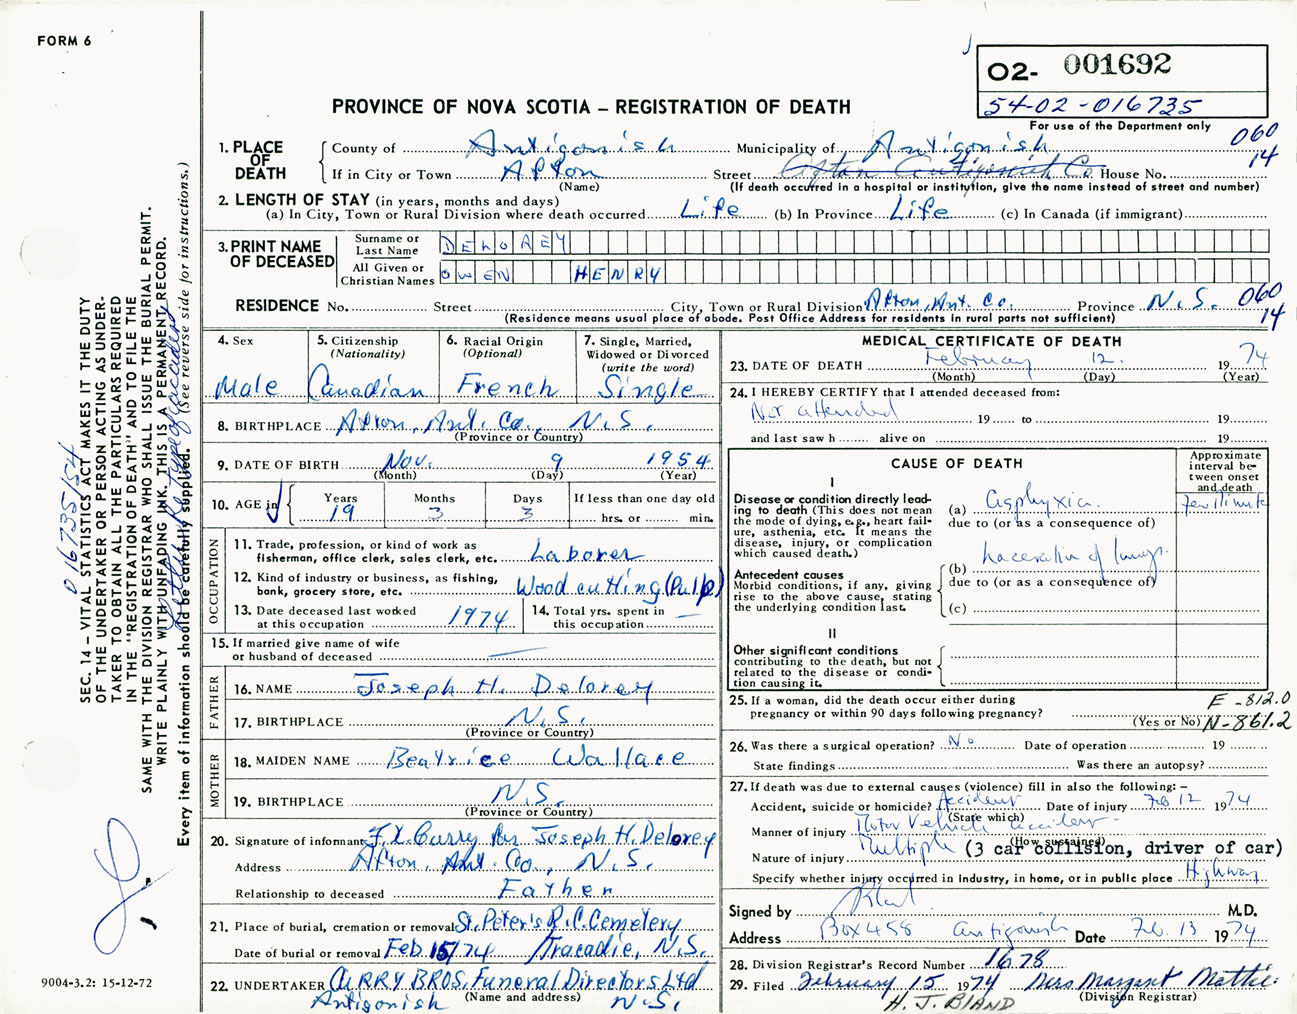 FORM 6
O2- 001692
54-02-016735
For use of the Department only
PROVINCE OF NOVA SCOTIA – REGISTRATION OF DEATH
1. PLACE OF DEATH
County of Antigonish Municipality of Antigonish 060
If in City or Town Afton Street House No. 14
(Name) (If death occurred in a hospital or institution, give the name instead of street and number)
2. LENGTH OF STAY (in years, months and days)
(a) In City, Town or Rural Division where death occurred Life (b) In Province Life (c) In Canada (if immigrant)
3. PRINT NAME OF DECEASED
Surname or Last Name DELOREY
All Given or Christian Names OWEN HENRY
RESIDENCE No. Street City, Town or Rural Division Afton, Ant. Co. Province N.S. 060
(Residence means usual place of abode. Post Office Address for residents in rural parts not sufficient) 14
4. Sex
Male
5. Citizenship
(Nationality)
Canadian
6. Racial Origin
(Optional)
French
7. Single, Married,
Widowed or Divorced
(write the word)
Single
8. BIRTHPLACE Afton, Ant. Co., N.S.
(Province or Country)
9. DATE OF BIRTH Nov. 9 1954
(Month) (Day) (Year)
10. AGE in
Years Months Days If less than one day old
19 3 3 hrs. or min.
OCCUPATION
11. Trade, profession, or kind of work as
fisherman, office clerk, sales clerk, etc. Laborer
12. Kind of industry or business, as fishing,
bank, grocery store, etc. Wood cutting (Pulp)
13. Date deceased last worked
at this occupation 1974
14. Total yrs. spent in
this occupation —
15. If married give name of wife
or husband of deceased —
FATHER
16. NAME Joseph H. Delorey
17. BIRTHPLACE N.S.
(Province or Country)
MOTHER
18. MAIDEN NAME Beatrice Wallace
19. BIRTHPLACE N.S.
(Province or Country)
20. Signature of informant F.X. Curry for Joseph H. Delorey
Address Afton, Ant. Co., N.S.
Relationship to deceased Father
21. Place of burial, cremation or removal St. Peter's R.C. Cemetery
Date of burial or removal Feb 15/74 Tracadie, N.S.
22. UNDERTAKER CURRY BROS. Funeral Directors Ltd
(Name and address)
Antigonish N.S.
MEDICAL CERTIFICATE OF DEATH
23. DATE OF DEATH February 12. 1974
(Month) (Day) (Year)
24. I HEREBY CERTIFY that I attended deceased from:
Not attended 19 to 19
and last saw h alive on 19
CAUSE OF DEATH
Approximate interval between onset and death
I
Disease or condition directly leading to death (This does not mean the mode of dying, e.g., heart failure, asthenia, etc. It means the disease, injury, or complication which caused death.)
(a) Asphyxia. few minutes
due to (or as a consequence of)
Antecedent causes
Morbid conditions, if any, giving rise to the above cause, stating the underlying condition last.
(b) Laceration of lungs.
due to (or as a consequence of)
(c)
II
Other significant conditions
contributing to the death, but not related to the disease or condition causing it.
25. If a woman, did the death occur either during
pregnancy or within 90 days following pregnancy?
(Yes or No)
E-812.0
N-861.2
26. Was there a surgical operation? No Date of operation 19
State findings Was there an autopsy?
27. If death was due to external causes (violence) fill in also the following: –
Accident, suicide or homicide? Accident Date of injury Feb 12 1974
(State which)
Manner of injury Motor Vehicle accident.
(How sustained)
Nature of injury Multiple (3 car collision, driver of car)
Specify whether injury occurred in industry, in home, or in public place Highway
Signed by M.D.
Address Box 458 Antigonish Date Feb. 13 1974
28. Division Registrar's Record Number 1678
29. Filed February 15 1974 Mrs Margaret Mattie
(Division Registrar)
H. J. BLAND
SEC. 14 – VITAL STATISTICS ACT MAKES IT THE DUTY
OF THE UNDERTAKER OR PERSON ACTING AS UNDER-
TAKER TO OBTAIN ALL THE PARTICULARS REQUIRED
IN THE "REGISTRATION OF DEATH" AND TO FILE THE
SAME WITH THE DIVISION REGISTRAR WHO SHALL ISSUE THE BURIAL PERMIT.
WRITE PLAINLY WITH UNFADING INK. THIS IS A PERMANENT RECORD.
Every item of information should be carefully supplied. (See reverse side for instructions.)
016735/54
9004-3.2: 15-12-72